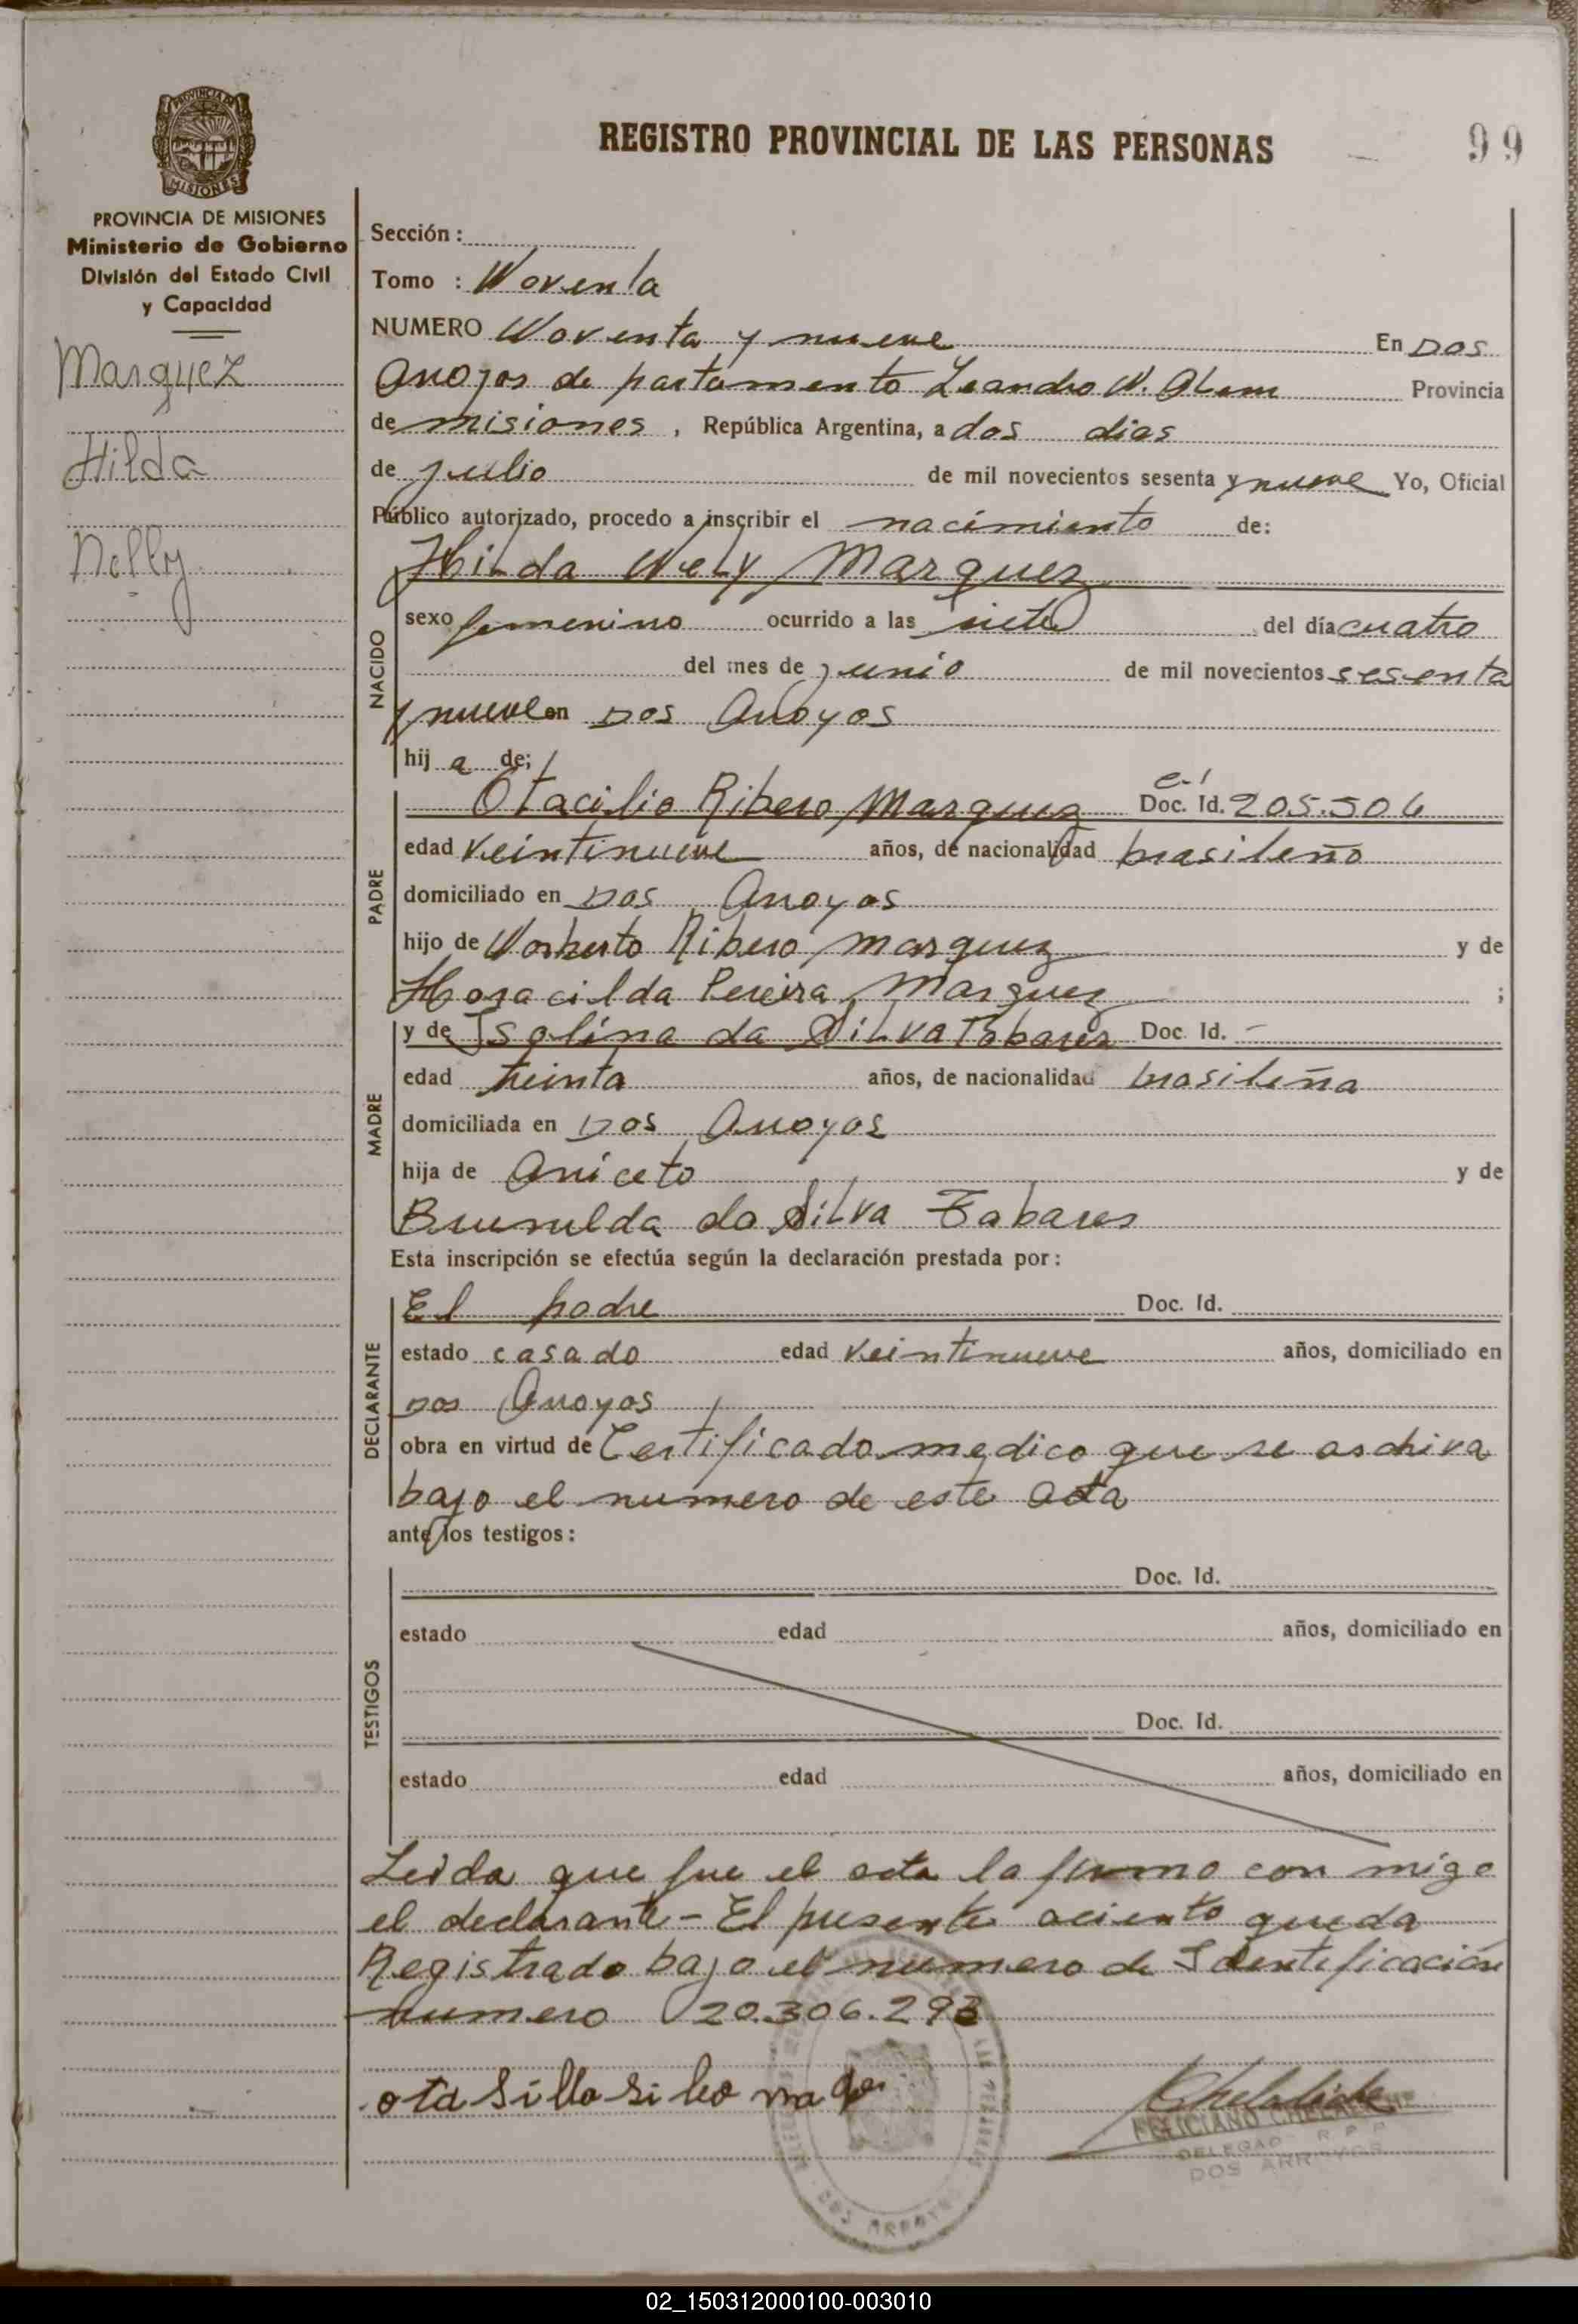 REGISTRO PROVINCIAL DE LAS PERSONAS
99
PROVINCIA DE MISIONES
PROVINCIA DE MISIONES
Ministerio de Gobierno
División del Estado Civil
y Capacidad
Marquez
Hilda
Nelly
Sección :
Tomo : Noventa
NUMERO Noventa y nueve En Dos
Arroyos de partamento Leandro N. Alem Provincia
de misiones , República Argentina, a dos dias
de julio de mil novecientos sesenta y nueve Yo, Oficial
Público autorizado, procedo a inscribir el nacimiento de:
Hilda Nely Marquez
NACIDO
sexo femenino ocurrido a las siete del día cuatro
del mes de junio de mil novecientos sesenta
y nueve en Dos Arroyos
hij a de;
PADRE
Otacilio Ribero Marquez Doc. Id. c.i 205.506
edad veintinueve años, de nacionalidad brasileño
domiciliado en Dos Arroyos
hijo de Norberto Ribero marquez y de
Horacilda Pereira Marquez ;
MADRE
y de Isolina da Silva Tabares Doc. Id. -
edad treinta años, de nacionalidad brasileña
domiciliada en Dos Arroyos
hija de Aniceto y de
Brunilda da Silva Tabares
Esta inscripción se efectúa según la declaración prestada por:
DECLARANTE
El padre Doc. Id.
estado casado edad veintinueve años, domiciliado en
Dos Arroyos
obra en virtud de Certificado medico que se archiva
bajo el numero de este acta
ante los testigos:
TESTIGOS
Doc. Id.
estado edad años, domiciliado en
Doc. Id.
estado edad años, domiciliado en
Leida que fue el acta la firmo con migo
el declarante - El presente aciento queda
Registrado bajo el numero de Identificación
numero 20.306.293
FELICIANO
DELEGADO R P P
DOS ARROYOS
DOS ARROYOS
02_150312000100-003010